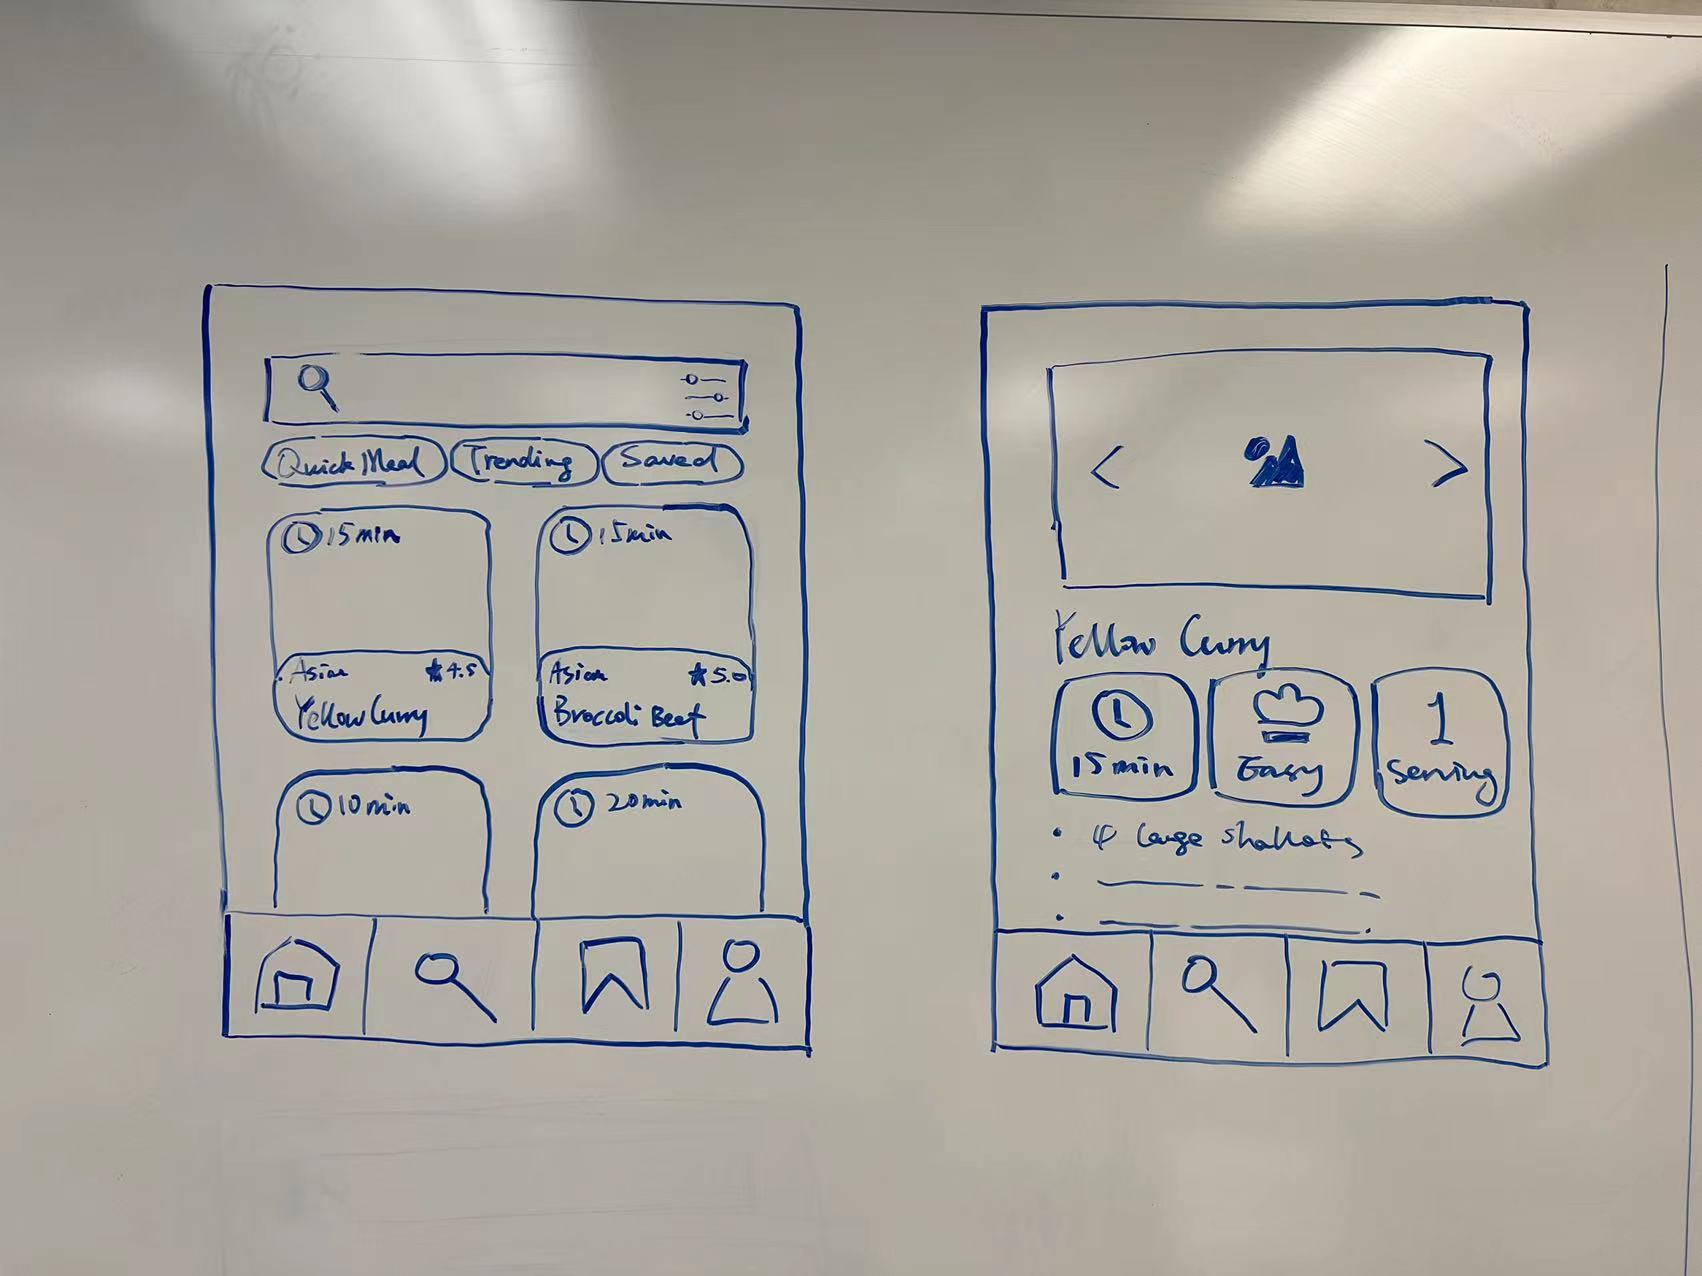 Quick Meal Trending Saved
15min 15min
Asian ★4.5 Asian ★5.0
Yellow Curry Broccoli Beef
10min 20min
Yellow Curry
15min Easy 1 Serving
• 4 large shallots